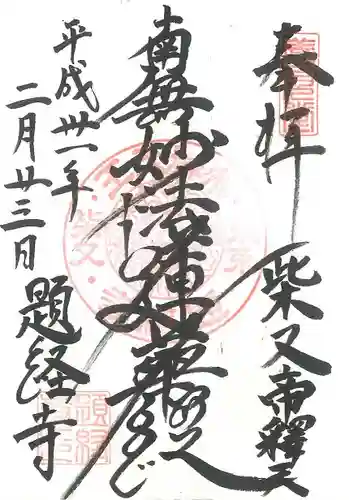 奉拝　柴又帝釋天
南無妙法蓮華経
平成卅一年
二月廿三日
題経寺